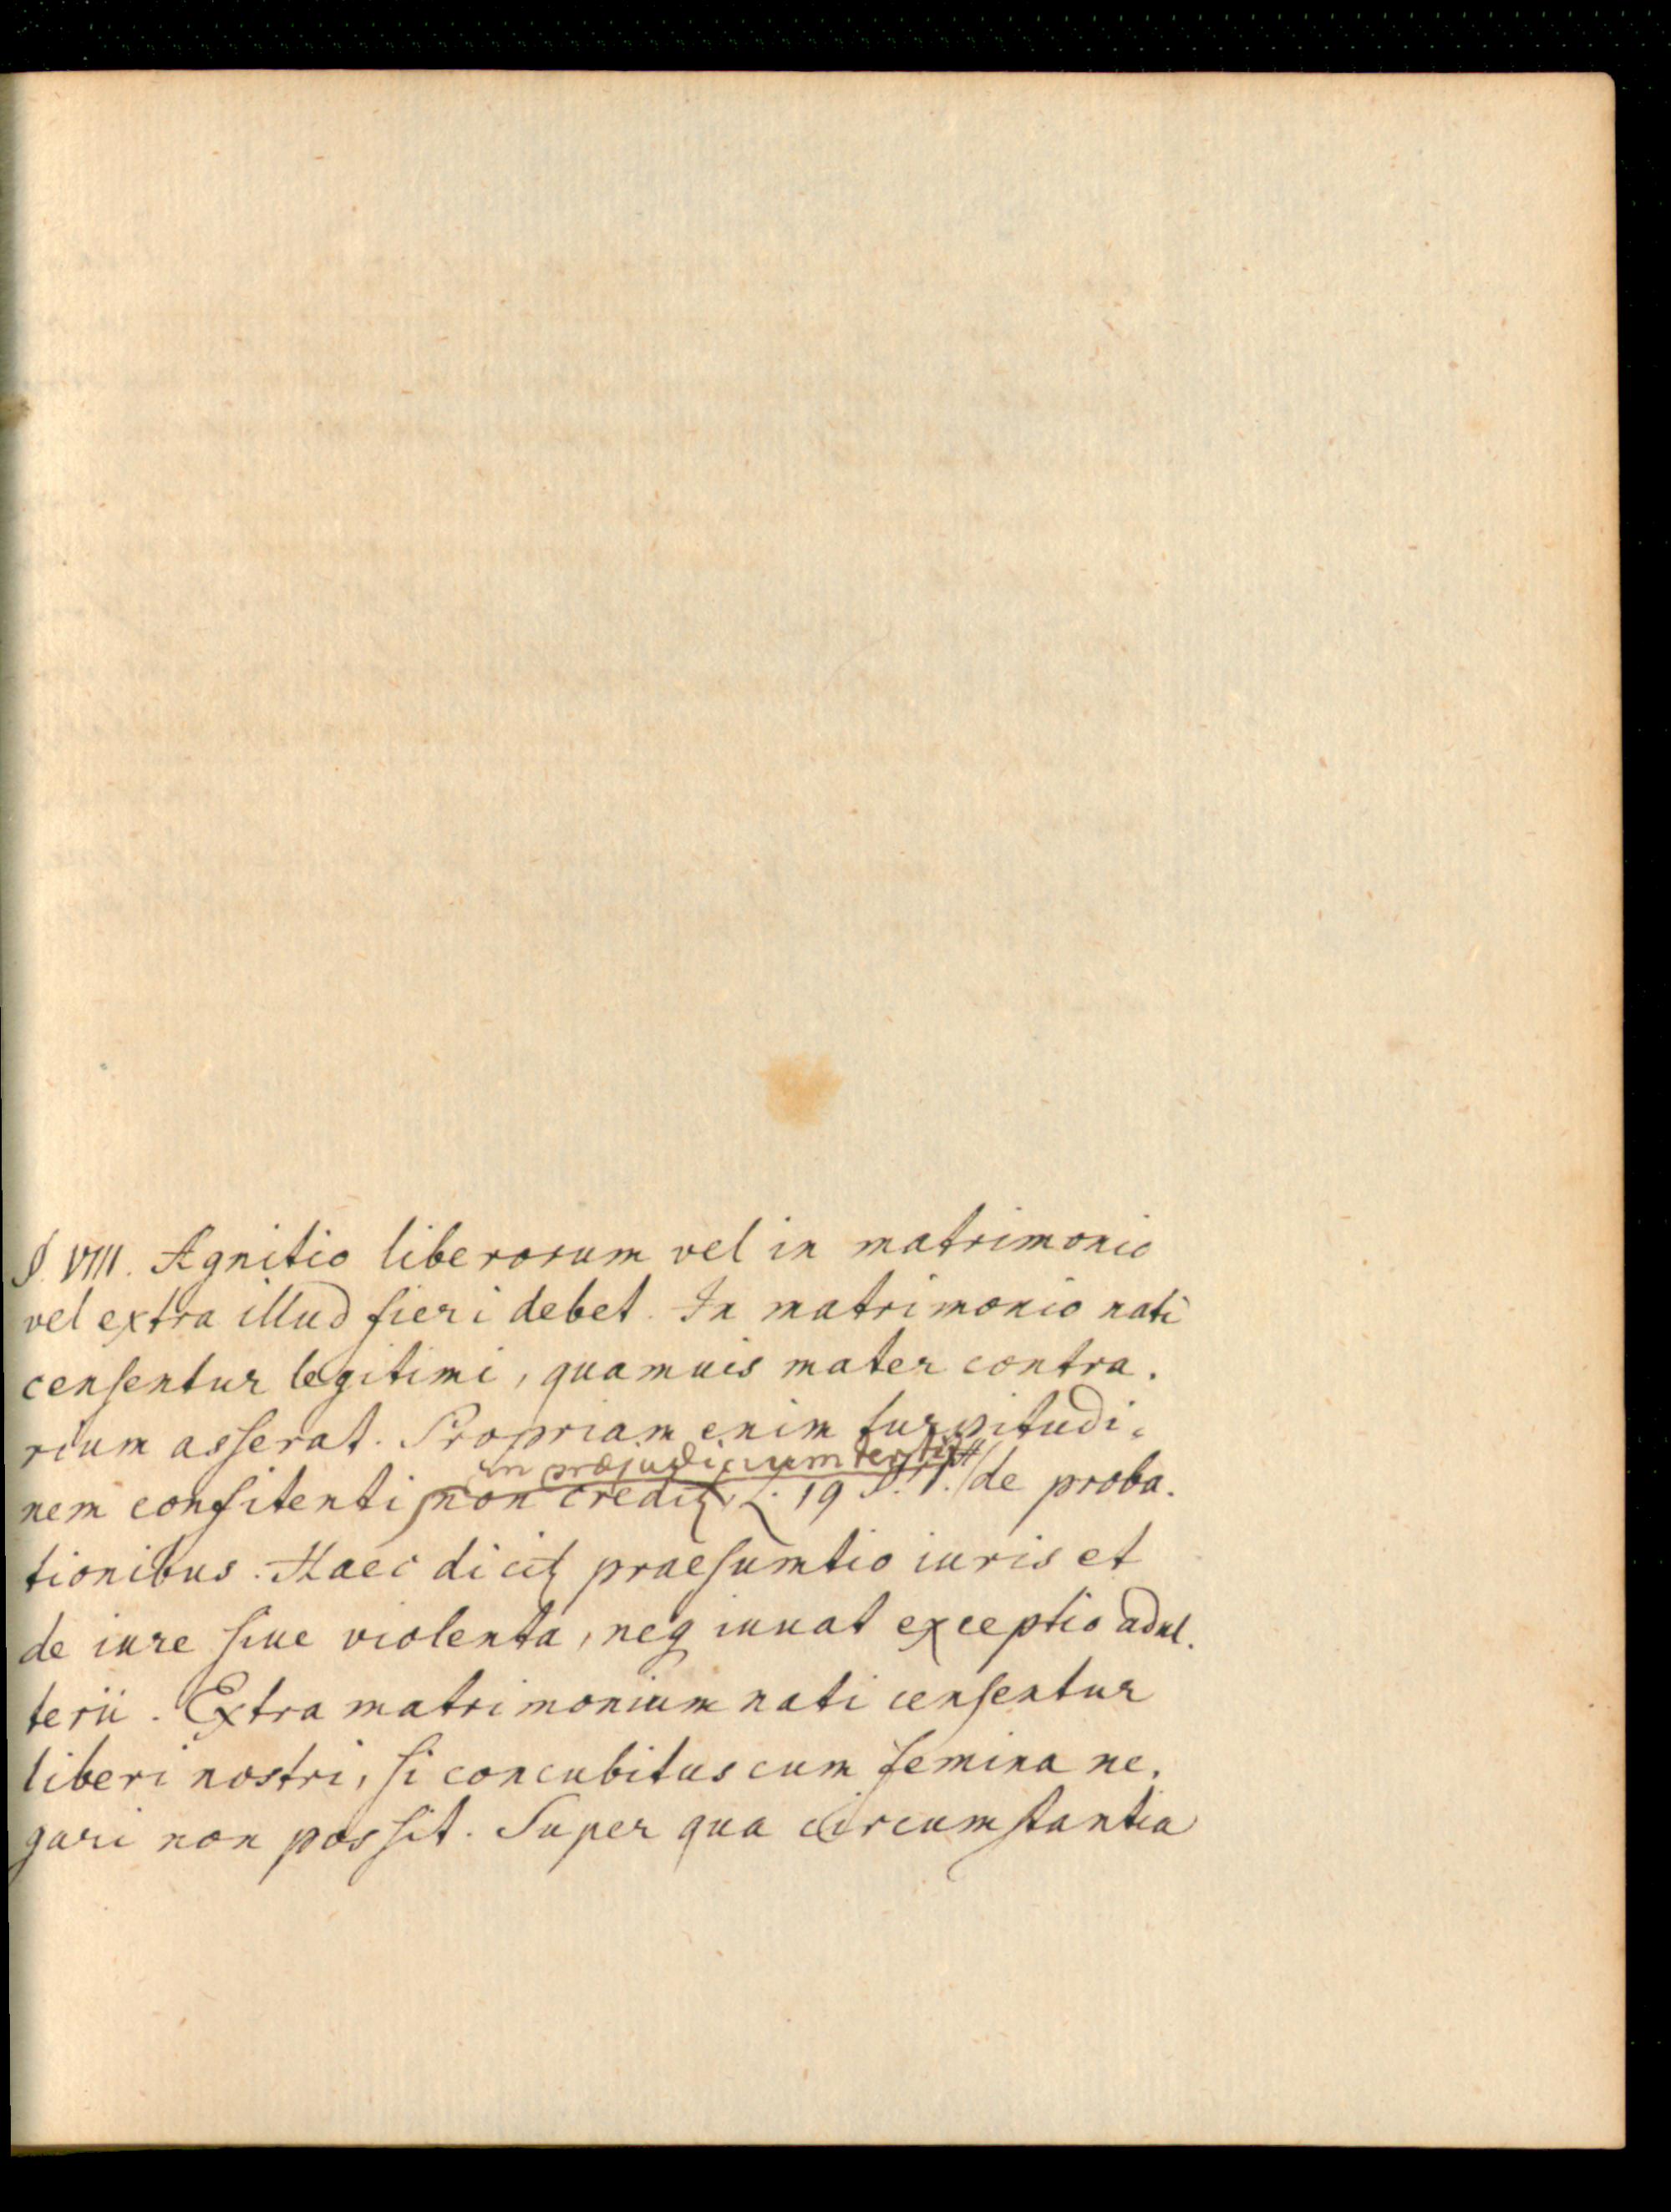 §. VIII. Agnitio liberorum vel in matrimonio
vel extra illud fieri debet. In matrimonio nati
censentur legitimi, quamuis mater contra.
rium asserat. Propriam enim turpitudi.
in præjudicium tertii
nem confitenti non credit L. 19 de proba.
tionibus. Haec dicit praesumtio iuris et
de iure siue violenta, neq iuuat exceptio adul.
terii. Extra matrimonium nati censentur
liberi nostri, si concubitus cum femina ne.
gari non possit. Super qua circumstantia